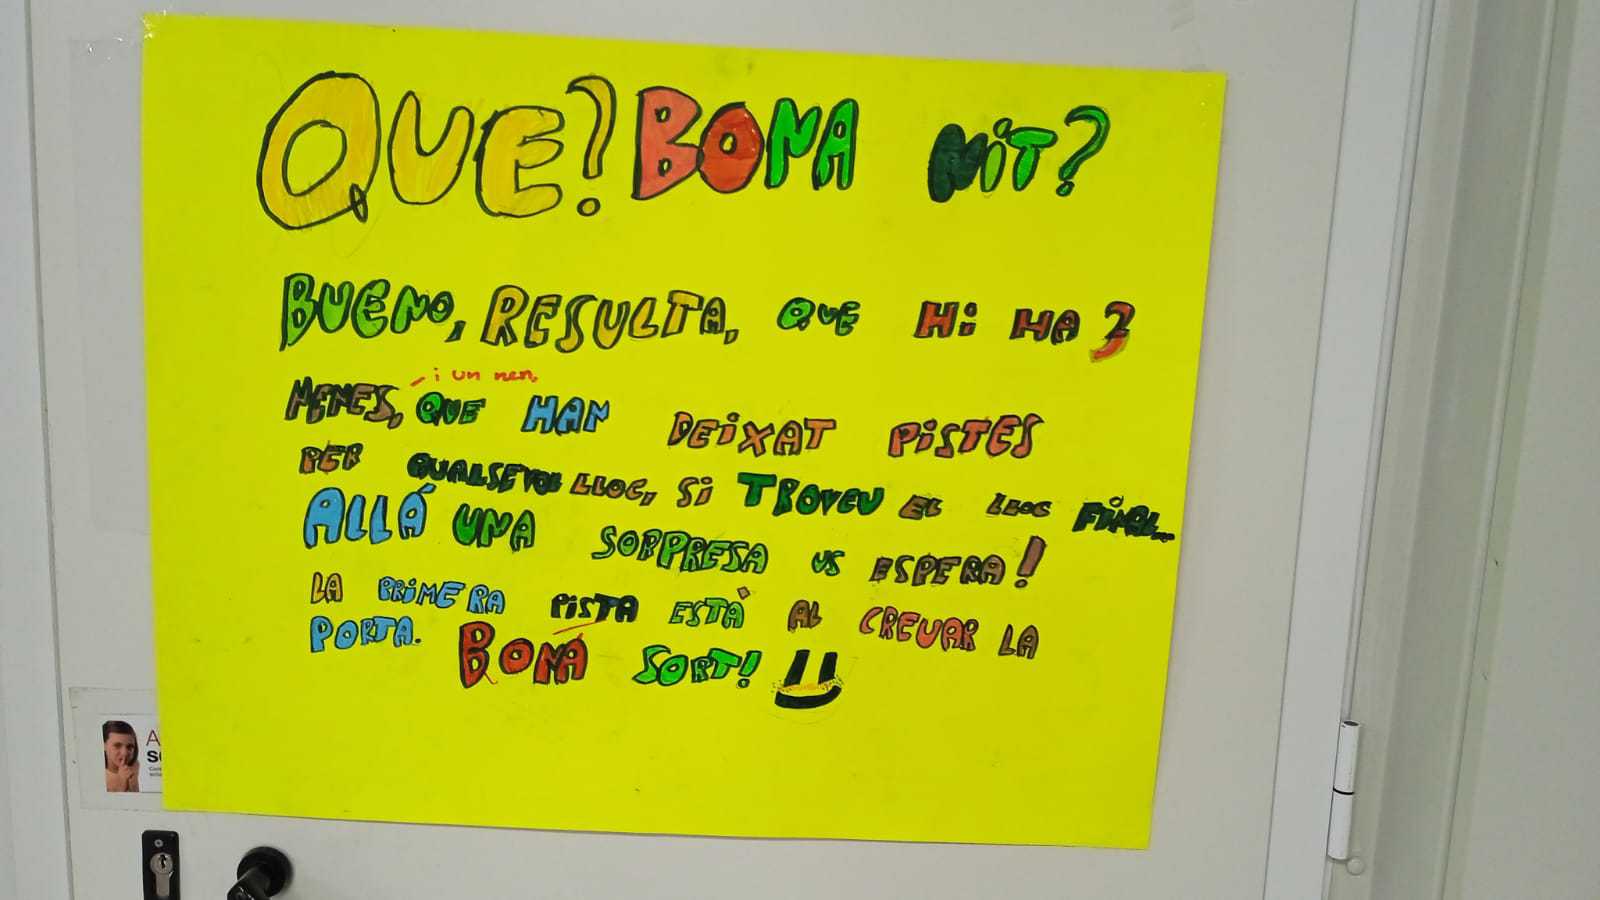 QUE? BONA NIT?
BUENO, RESULTA, QUE HI HA 3
i un nen,
NENES, QUE HAN DEIXAT PISTES
PER QUALSEVOL LLOC, SI TROVEU EL LLOC FINAL...
ALLÁ UNA SORPRESA US ESPERA!
LA PRIMERA PISTA ESTÀ AL CREUAR LA
PORTA. BONA SORT!